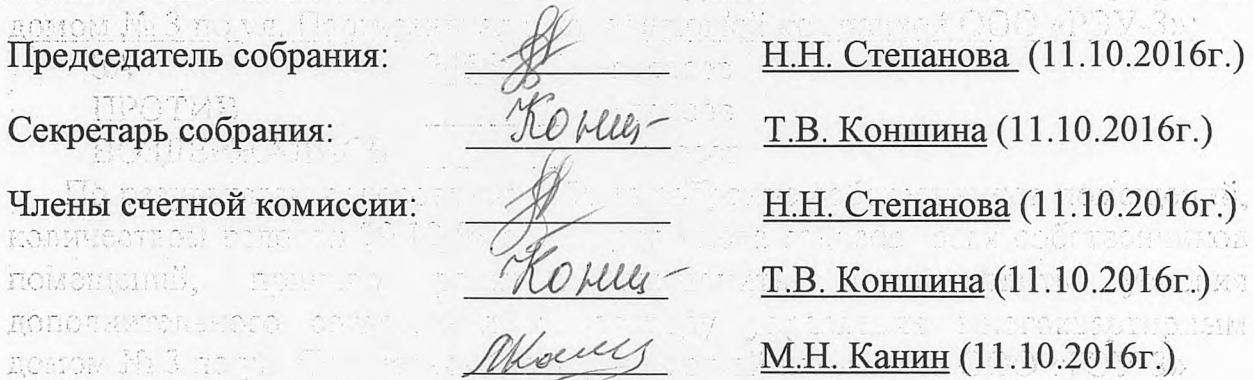 Председатель собрания: Н.Н. Степанова (11.10.2016г.)
Секретарь собрания: Конш Т.В. Коншина (11.10.2016г.)
Члены счетной комиссии: Н.Н. Степанова (11.10.2016г.)
Конш Т.В. Коншина (11.10.2016г.)
М.Н. Канин (11.10.2016г.)